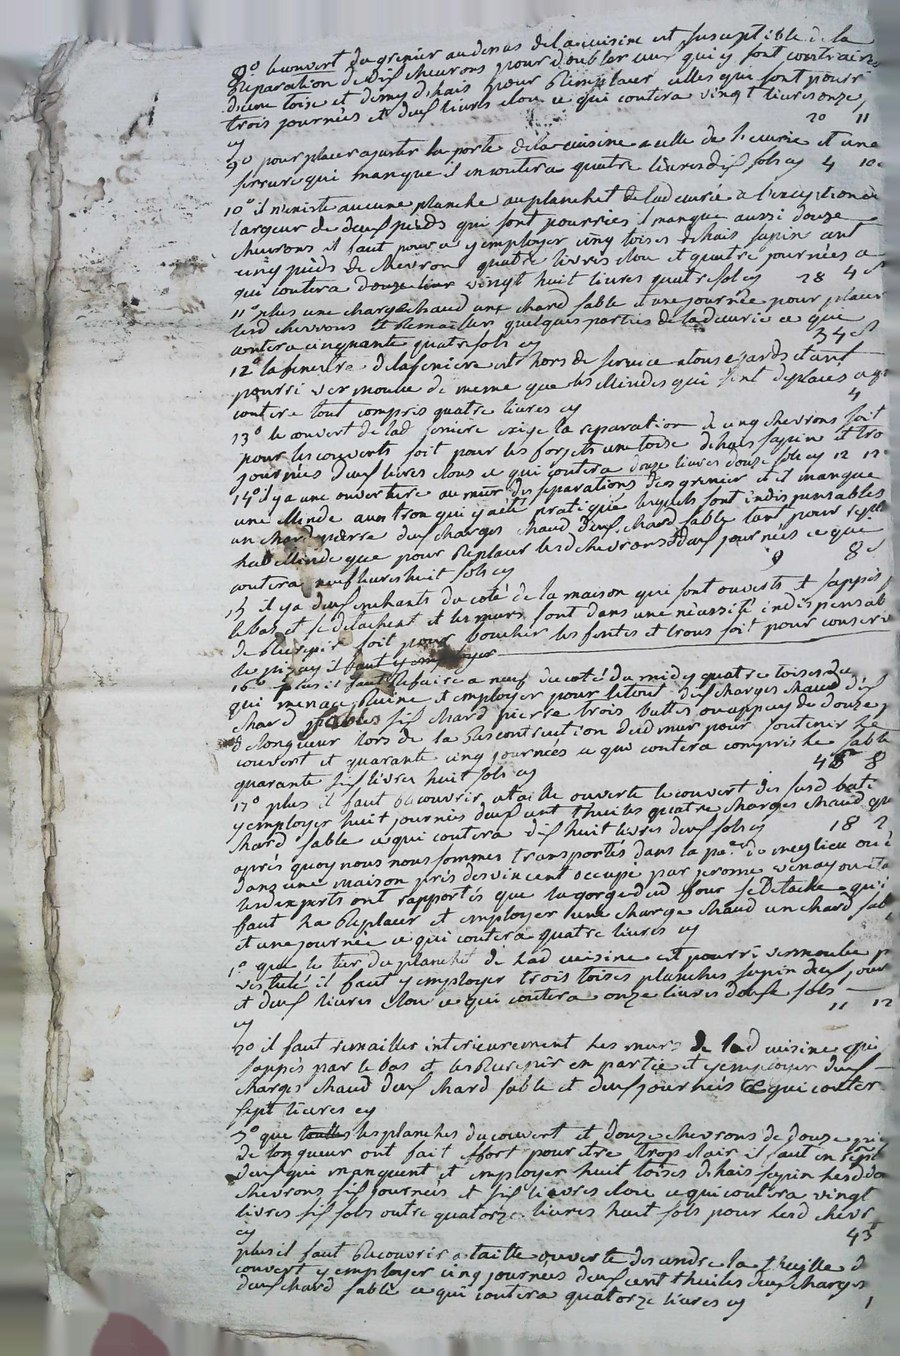 8º le couvert du grenier au desus de la cuisine est susceptible de la
Reparation de dix cheurons pour doubler ceux qui y sont contraires
d'une toise et demy d'hais pour Remplacer celles que sont pourri
trois journées et deux livres clou ce qui contera vingt livres onze
cy 20 11
9º pour placer ajuster la porte de la cuisine a celle de l'ecurie et une
serrure qui manque il en coutera quatre livres dix sols cy 4 10
10º il n'existe aucune planche au planchet de lad ecurie a l'exception
largeur de deux pieds qui sont pourries il manque aussi douze
cheurons il faut pour ce y employer cinq toises d'hais sapin cent
cinq pieds de chevron quatre livres clou et quatre journées ce
qui contera vingt huit livres quatre sols cy 28 4 s
11º plus une charge chaud une chard sable et une journée pour placer
lesd chevrons et Remailler quelques parties de lad ecurie ce que
contera cinquante quatre sols cy 54 s
12º la fenetre de la feniere est hors de service a tous egards etant
pourri vermoulue de meme que les que sont deplacés
contera tout compris quatre livres cy 4
13º le couvert de lad feniere exige la reparation de cinq chevrons soit
pour les couverts soit pour les forjets une toise d'hais sapin et tro
journées deux livres clous ce qui contera douze livres douze sols cy 12 12
14º il y a une ouverture au mur des separations des grenier et il manque
une a un tron qui y a été pratiqué lesquels sont indispensables
un chard pierre deux charges chaud deux chard sable tant pour
que pour Replacer lesd chevrons deux journées ce qui
contera neuf livres huit sols cy 9 8 s
15 il y a deux du coté de la maison qui sont ouverts et sappés
le bas et se detachent et les murs sont dans une necessité indispensab
de Recrepir soit pour boucher les fentes et trous soit pour conserv
le il faut y employer
16º plus il faut Refaire a neuf du coté du midy quatre toises du
qui menace Ruine et employer pour le tout dix charges chaud dix
chard sables six chard pierre trois buttes ou appuy de douze p
de longueur lors de la Reconstruction dud mur pour soutenir le
couvert et quarante cinq journées ce qui contera compris le sable
quarante six livres huit sols cy 46 8
17º plus il faut Recouvrir a taille ouverte le couvert des susd bati
y employer huit journées deux cent thuiles quatre charges chaud qu
chard sable ce qui contera dix huit livres deux sols cy 18 2
après quoy nous nous sommes transportés dans la p.se de meylieu
dans une maison près des vincent occupé par jerome
lesd experts ont rapportés que la gorge dud four se Detache qu'i
faut la Replacer et employer une charge chaud un chard sab
et une journée ce qui contera quatre livres cy
1º que le tier du planchet de lad cuisine est pourri vermoulu p
vestuté il faut y employer trois toises planches sapin deux jour
et deux livres clou ce qui contera onze livres douze sols
cy 11 12
2º il faut remailler interieurement les murs de lad cuisine qui
sappés par le bas et les Recrepir en partie et y employer deux
charges chaud deux chard sable et deux journées ce qui conter
sept livres cy
3º que toutes les planches du couvert et douze chevrons de douze pie
de longueur ont fait effort pour être trop clair il faut en
deux qui manquent et employer huit toises d'hais sapin lesd do
chevrons six journées et six livres clou ce qui contera vingt
livres six sols outre quatorze livres huit sols pour lesd chevr
cy 43
plus il faut Recouvrir a taille ouverte descendre la thuille d
couvert y employer cinq journées deux cent thuiles deux charges
deux chard sable ce qui contera quatorze livres cy 1